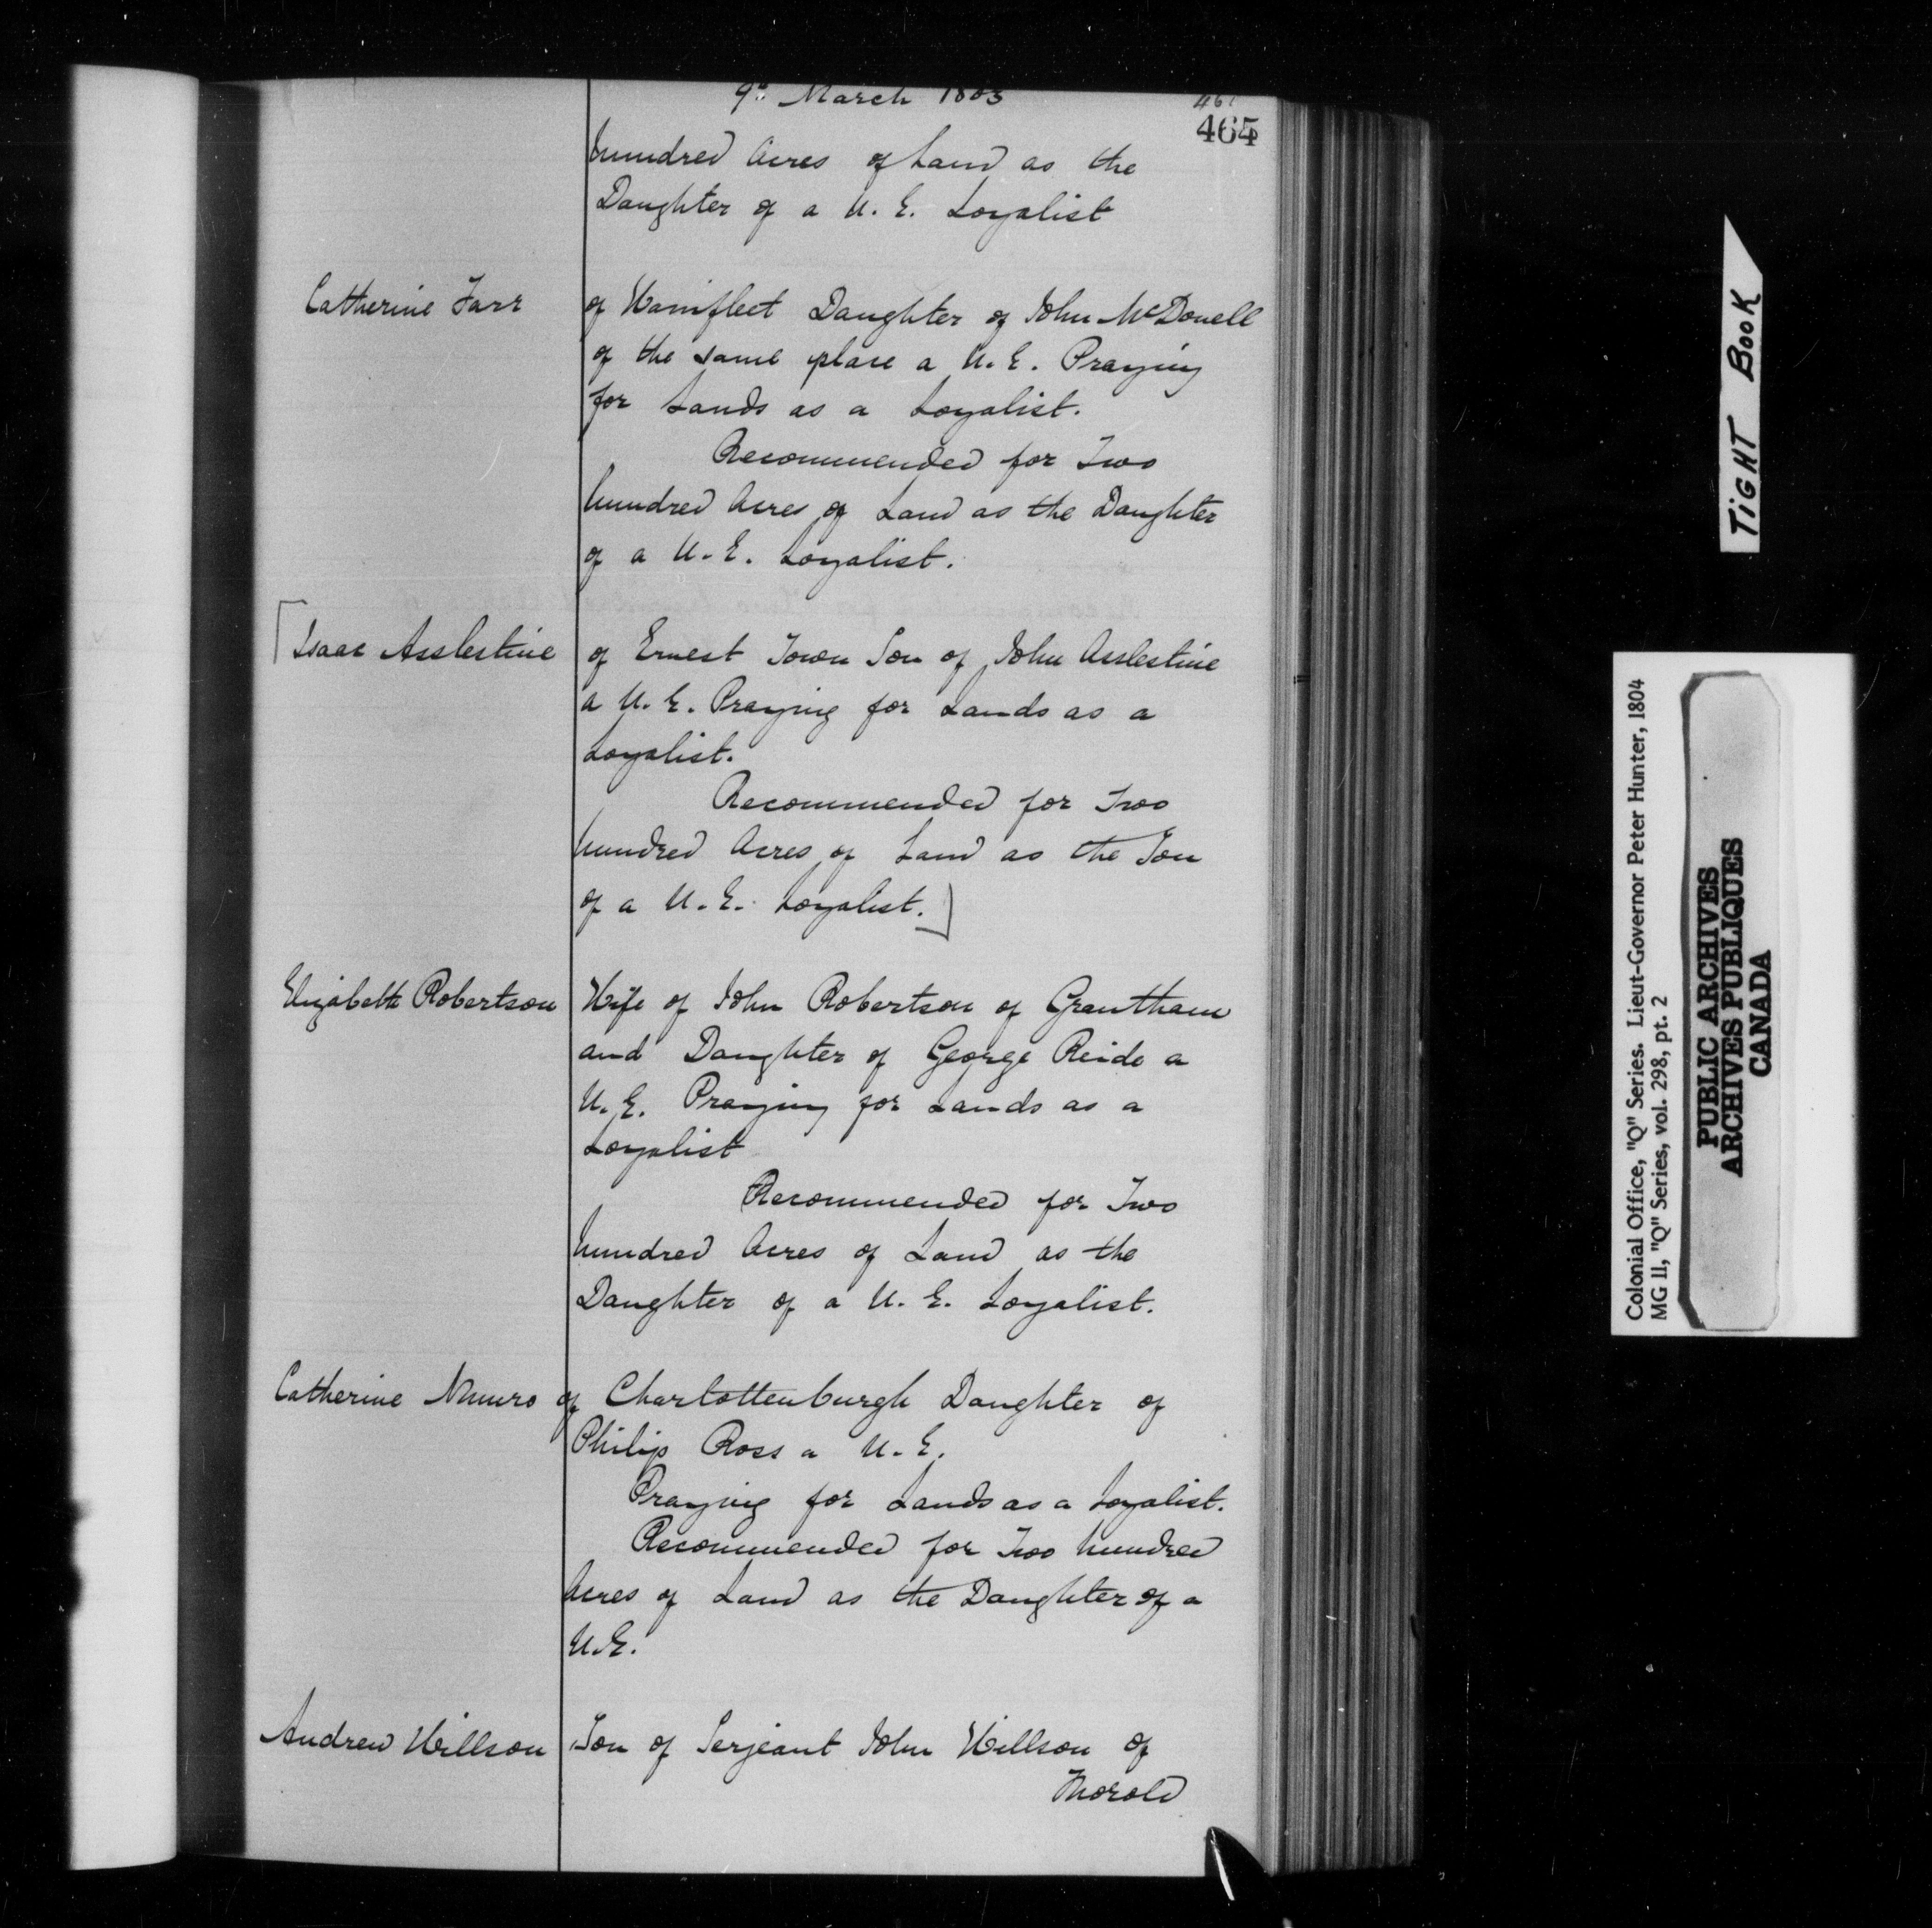 9th March 1803
461
464
hundred Acres of Land as the
Daughter of a U. E. Loyalist
Catherine Farr of Wainfleet Daughter of John McDonell
of the same place a U. E. Praying
for Lands as a Loyalist.
Recommended for Two
hundred Acres of Land as the Daughter
of a U. E. Loyalist.
[Isaac Asslestine of Ernest Town Son of John Asslestine
a U. E. Praying for Lands as a
Loyalist.
Recommended for Two
hundred Acres of Land as the Son
of a U. E. Loyalist.]
Elizabeth Robertson Wife of John Robertson of Grantham
and Daughter of George Reide a
U. E. Praying for Lands as a
Loyalist
Recommended for Two
hundred Acres of Land as the
Daughter of a U. E. Loyalist.
Catherine Munro of Charlottenburgh Daughter of
Philip Ross a U. E.
Praying for Lands as a Loyalist.
Recommended for Two hundred
Acres of Land as the Daughter of a
U.E.
Andrew Willson Son of Serjeant John Willson of
Thorold
TIGHT BOOK
Colonial Office, "Q" Series. Lieut-Governor Peter Hunter, 1804
MG 11, "Q" Series, vol. 298, pt. 2
PUBLIC ARCHIVES
ARCHIVES PUBLIQUES
CANADA